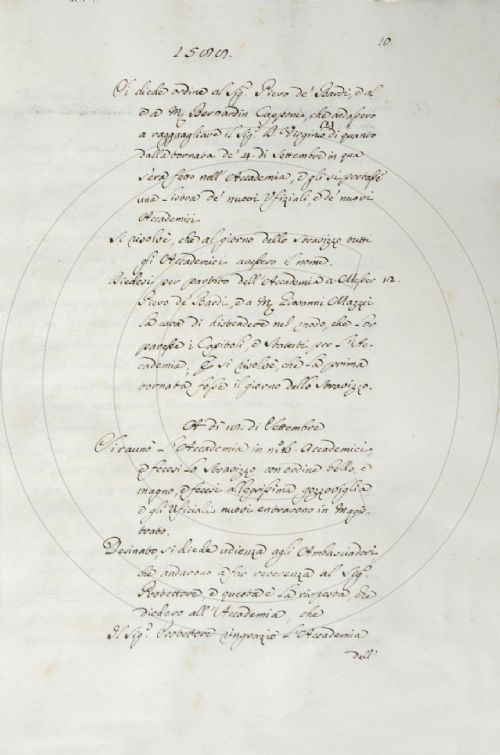 10.
1589.
Si diede ordine al Sig.r Piero de' Bardi, e al
a M. Bernardin Capponi, che andassero
a ragguagliare il Sig.r D. Virginio di quanto
dalla tornata de' 4. di Settembre in qua
s'era fatto nell'Accademia, e gli si portasse
una Listra de' nuovi Ufiziali, e de' nuovi
Accademici.
Si risolvè, che al giorno dello Stravizzo tutti
gli Accademici avessero il nome.
Diedesi per partito dell'Accademia a Messer 12.
Piero de' Bardi, e a M. Giovanni Mazzei
la cura di distendere nel modo, che lor
paresse i Capitoli, e Statuti per l'Ac-
cademia; E si risolvè, che la prima
tornata fosse il giorno dello Stravizzo.
A dì di Settembre
Si raunò l'Accademia in n.° 16. Accademici,
e fecesi lo Stravizzo con ordine bello, e
magno, e fecesi allegrissima gozzoviglia
e gli Uficiali nuovi entrarono in Magis-
trato.
Desinato si diede udienza agli Ambasciadori
che andarono a far reverenza al Sig.r
Protettore, e questa è la risposta, che
diedero all'Accademia, che
Il Sig.r Protettore ringraziò l'Accademia
dell'